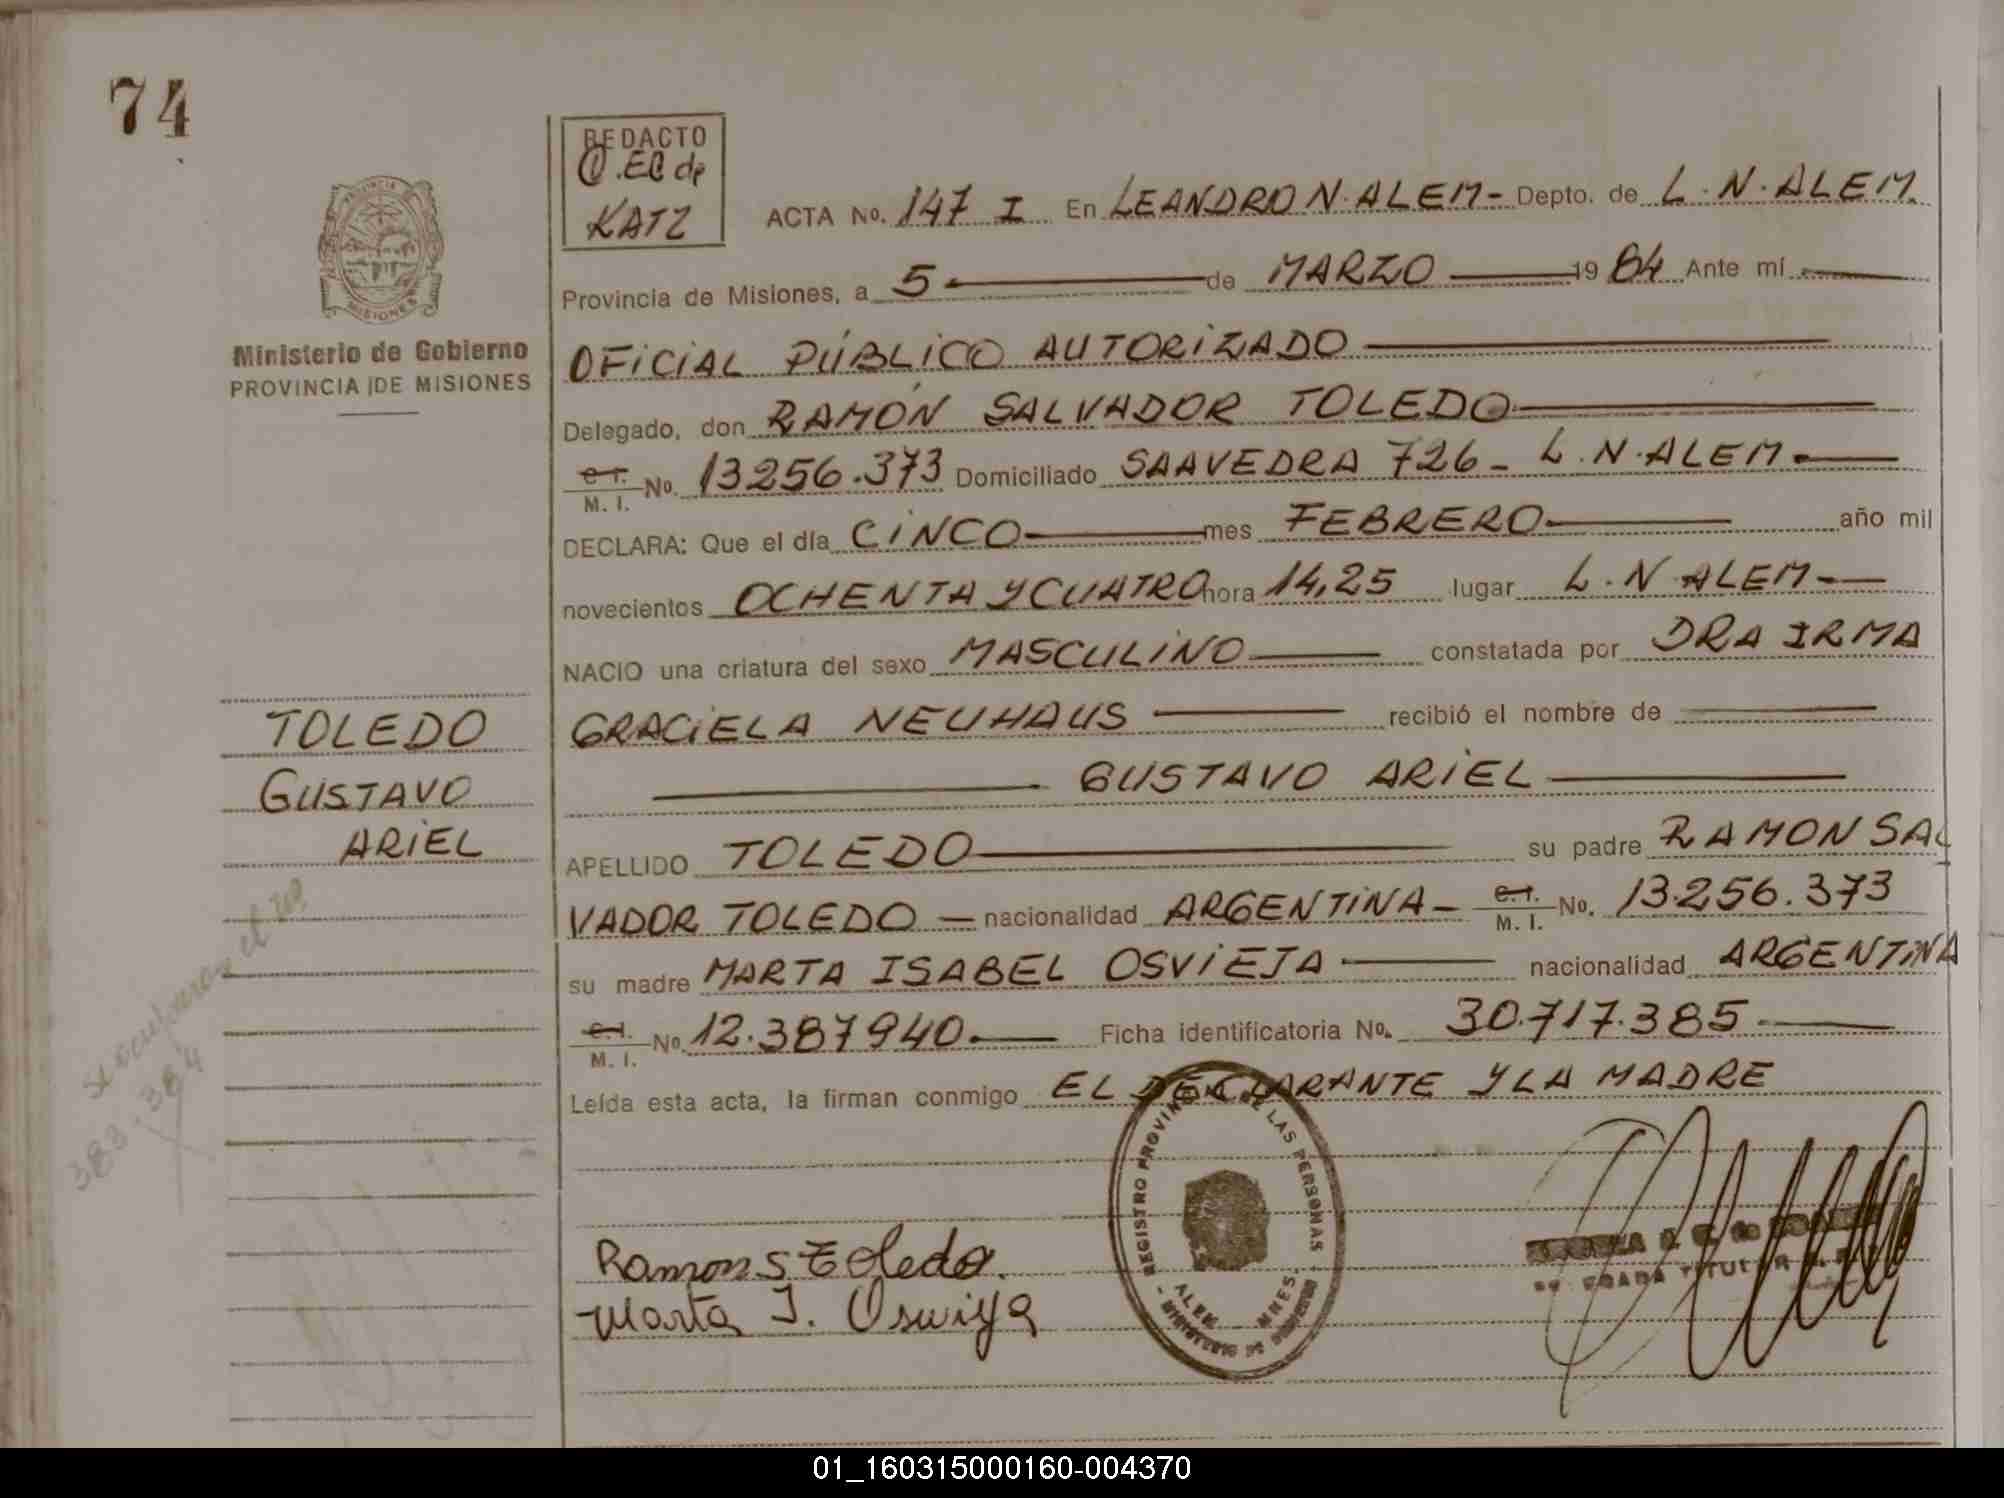 74
REDACTO
KATZ
ACTA No. 147 I En LEANDRO N. ALEM- Depto. de L. N. ALEM.
Provincia de Misiones, a 5 de MARZO 1984 Ante mí
Ministerio de Gobierno
PROVINCIA DE MISIONES
OFICIAL PÚBLICO AUTORIZADO
Delegado, don RAMÓN SALVADOR TOLEDO
C. I. M. I. No. 13256.373 Domiciliado SAAVEDRA 726- L. N. ALEM-
DECLARA: Que el día CINCO mes FEBRERO año mil
novecientos OCHENTA Y CUATRO hora 14,25 lugar L. N. ALEM-
NACIO una criatura del sexo MASCULINO constatada por DRA IRMA
GRACIELA NEUHAUS recibió el nombre de
GUSTAVO ARIEL
TOLEDO
GUSTAVO
ARIEL
APELLIDO TOLEDO su padre RAMON SAL
VADOR TOLEDO - nacionalidad ARGENTINA- C. I. M. I. No. 13.256.373
su madre MARTA ISABEL OSVIEJA nacionalidad ARGENTINA
C. I. M. I. No. 12.387940. Ficha identificatoria No. 30.717.385
Leída esta acta, la firman conmigo EL DECLARANTE Y LA MADRE
383.384
REGISTRO PROVINCIAL DE LAS PERSONAS
ALEM MNES.
Ramon S Toledo.
Marta I. Oswiya
TITULAR
01_160315000160-004370